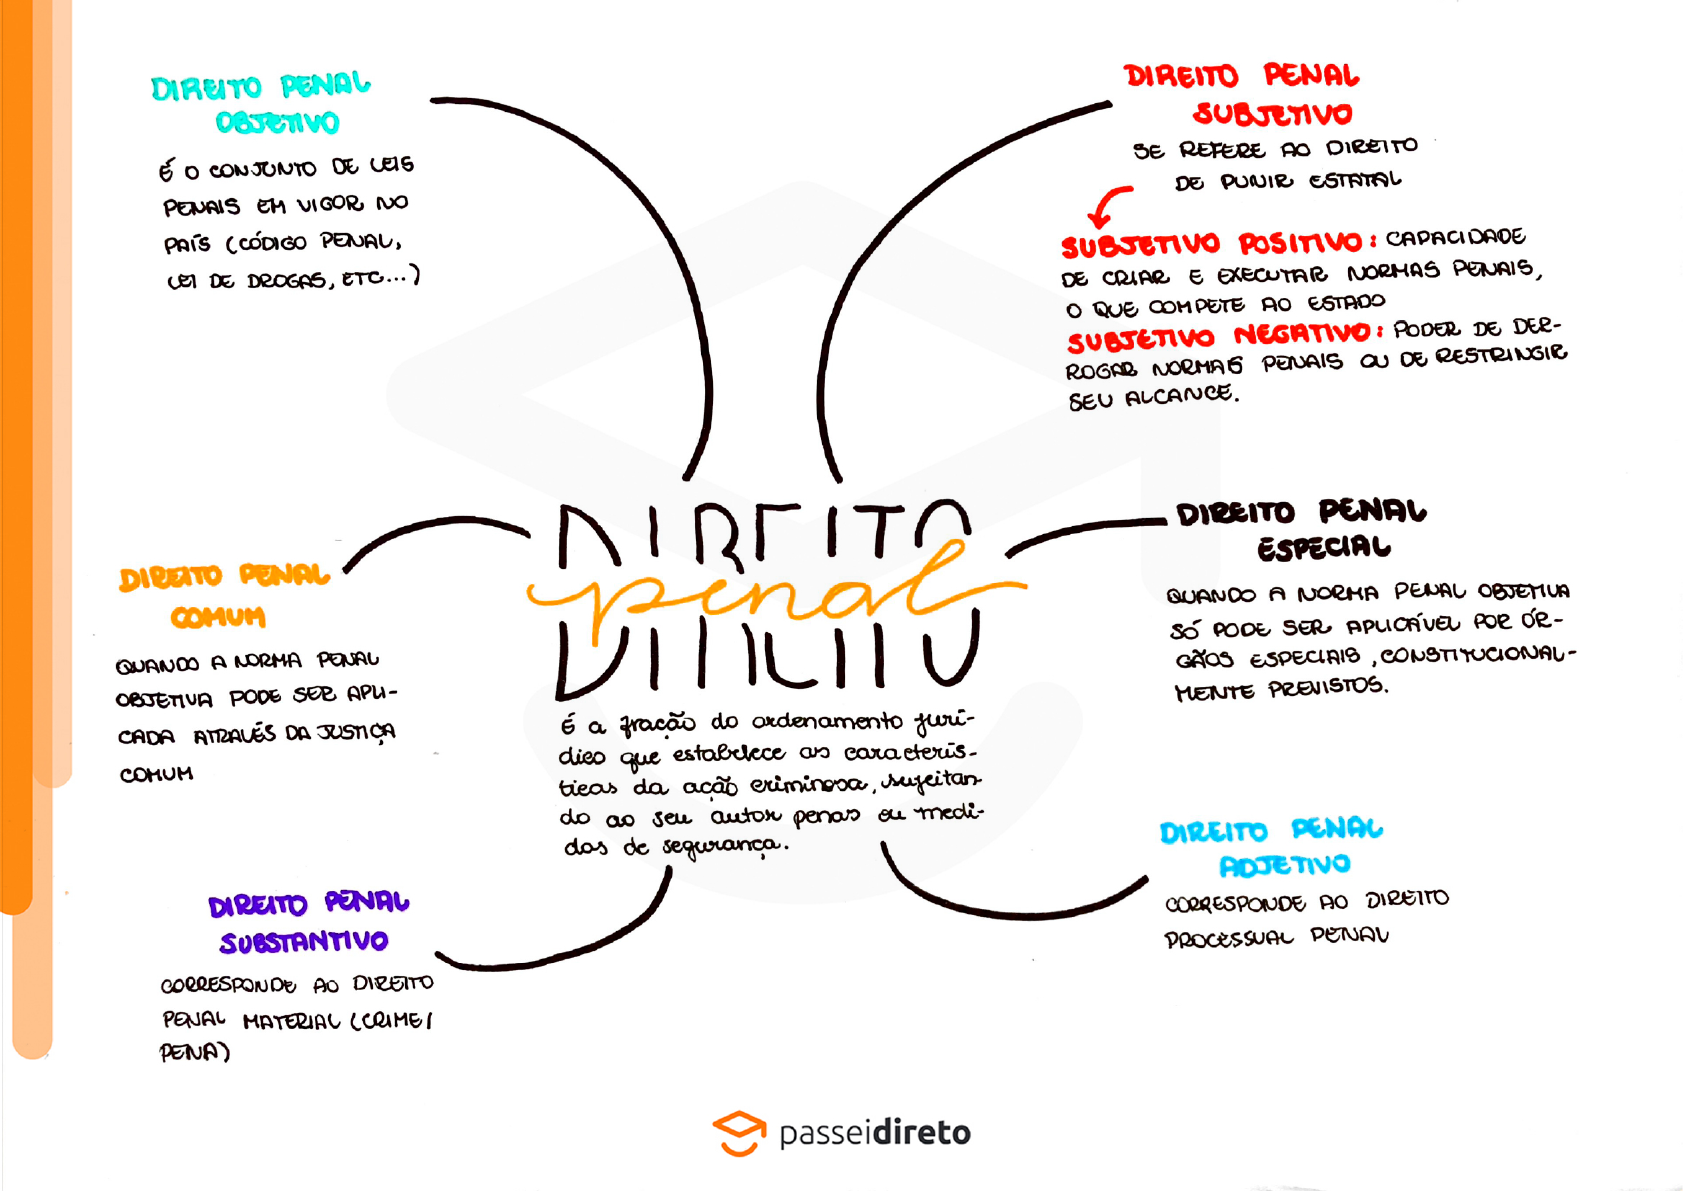 DIREITO PENAL
OBJETIVO
É O CONJUNTO DE LEIS
PENAIS EM VIGOR NO
PAÍS (CÓDIGO PENAL,
LEI DE DROGAS, ETC...)
DIREITO PENAL
SUBJETIVO
SE REFERE AO DIREITO
DE PUNIR ESTATAL
SUBJETIVO POSITIVO: CAPACIDADE
DE CRIAR E EXECUTAR NORMAS PENAIS,
O QUE COMPETE AO ESTADO
SUBJETIVO NEGATIVO: PODER DE DER-
ROGAR NORMAS PENAIS OU DE RESTRINGIR
SEU ALCANCE.
DIREITO PENAL
COMUM
QUANDO A NORMA PENAL
OBJETIVA PODE SER APLI-
CADA ATRAVÉS DA JUSTIÇA
COMUM
DIREITO
penal
É a fração do ordenamento jurí-
dico que estabelece as caracterís-
ticas da ação criminosa, sujeitan
do ao seu autor penas ou medi-
das de segurança.
DIREITO PENAL
ESPECIAL
QUANDO A NORMA PENAL OBJETIVA
SÓ PODE SER APLICÁVEL POR ÓR-
GÃOS ESPECIAIS, CONSTITUCIONAL-
MENTE PREVISTOS.
DIREITO PENAL
SUBSTANTIVO
CORRESPONDE AO DIREITO
PENAL MATERIAL (CRIME/
PENA)
DIREITO PENAL
ADJETIVO
CORRESPONDE AO DIREITO
PROCESSUAL PENAL
passeidireto